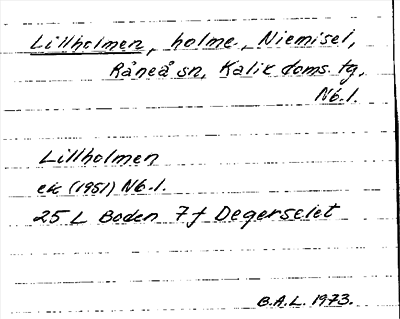 Lillholmen, holme, Niemisel,
Råneå sn, Kalix doms. tg,
Nb. l.
Lillholmen
ek (1951) Nb. l.
25 L Boden 7 f Degerselet
B.A.L. 1973.